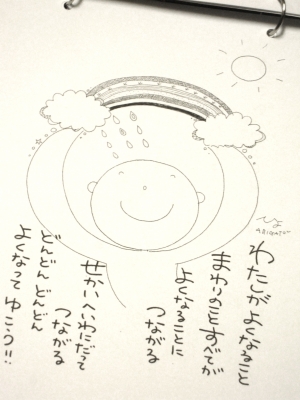 わたしがよくなること
まわりのことすべてが
よくなることに
つながる
せかいへいわにだって
つながる
どんどんどんどん
よくなって ゆこう!!